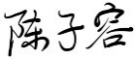 陈子容